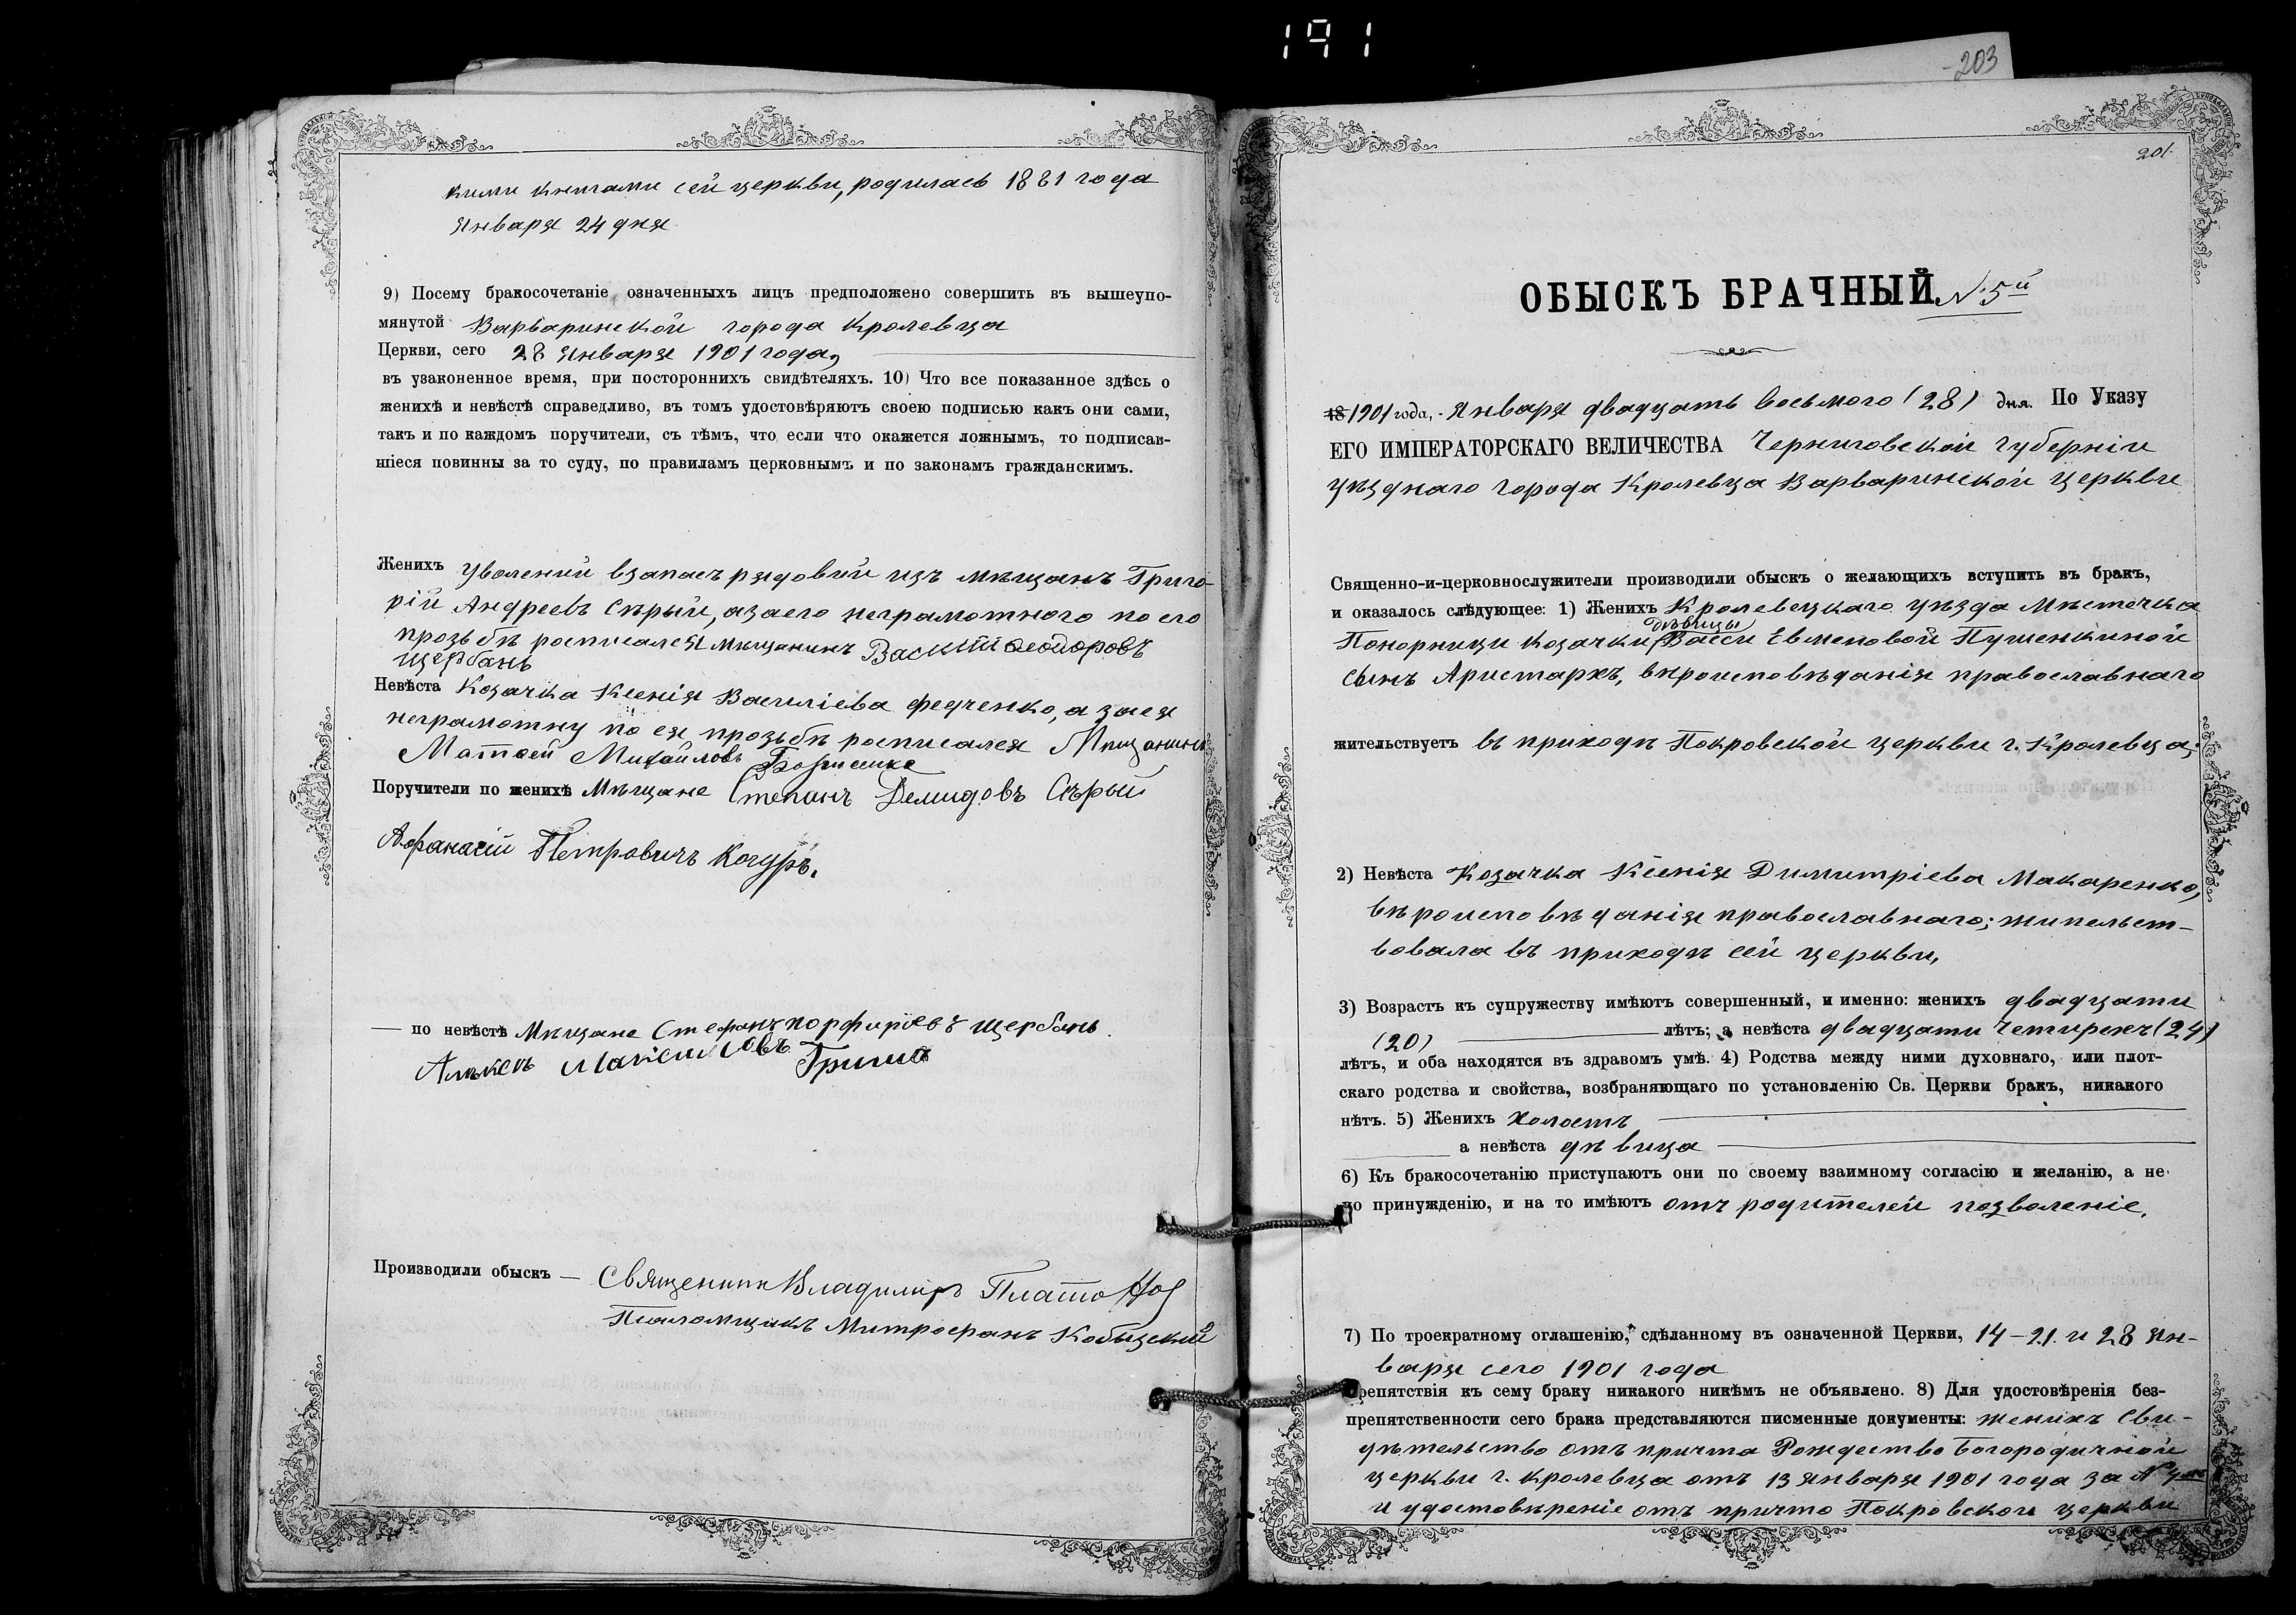 191
203
кими книгами сей церкви, родилась 1881 года
Января 24 дня
9) Посему бракосочетаніе означенныхъ лицъ предположено совершить въ вышеупо-
мянутой Варваринской города Кролевца
Церкви, сего 28 Января 1901 года,
въ узаконенное время, при постороннихъ свидѣтеляхъ. 10) Что все показанное здѣсь о
женихѣ и невѣстѣ справедливо, въ томъ удостовѣряютъ своею подписью какъ они сами,
такъ и по каждомъ поручители, съ тѣмъ, что если что окажется ложнымъ, то подписав-
шіеся повинны за то суду, по правиламъ церковнымъ и по законамъ гражданскимъ.
Женихъ Уволений взапасъ рядовий изъ мѣщанъ Григо-
рій Андреевъ Сѣрый, азаего неграмотного по его
прозьбѣ росписался мѣщанинъ Василій Ѳеодоровъ
Щербань
Невѣста Козачка Ксенія Василіева Федченко, а за ея
неграмотну по ея прозьбѣ росписался Мѣщанинъ
Матѳей Михайловъ
Поручители по женихѣ Мѣщане Степанъ Демидовъ Сѣрый
Афанасій Петровичъ Кочуръ.
— по невѣстѣ Мѣщане Стефанъ порфиріевъ щербань.
Алѣксѣ Максимовъ Гриша
Производили обыскъ — Священник Владимиръ Платонов
Псаломщикъ Митрофанъ Кобызский
201.
ОБЫСКЪ БРАЧНЫЙ N. 5й
18 1901 года, Января двадцать восьмого (28) дня. По Указу
ЕГО ИМПЕРАТОРСКАГО ВЕЛИЧЕСТВА Черниговской губерніи
уѣзднаго города Кролевца Варваринской церкви
Священно-и-церковнослужители производили обыскъ о желающихъ вступить въ бракъ,
и оказалось слѣдующее: 1) Женихъ Кролевецкаго уѣзда Мѣстечка
дѣвицы
Понорници козачки Васси Евменовой Пушенкиной
сынъ Аристархъ, вѣроисповѣданія православнаго
жительствуетъ въ приходѣ Покровской церкви г. Кролевца;
2) Невѣста Козачка Ксенія Димитріева Макаренко,
вѣроисповѣданія православнаго; жительст-
вовала въ приходѣ сей церкви,
3) Возрастъ къ супружеству имѣютъ совершенный, и именно: женихъ двадцати
(20) лѣтъ; а невѣста двадцати четирехъ (24)
лѣтъ, и оба находятся въ здравомъ умѣ. 4) Родства между ними духовнаго, или плот-
скаго родства и свойства, возбраняющаго по установленію Св. Церкви бракъ, никакого
нѣтъ. 5) Женихъ холостъ
а невѣста дѣвица
6) Къ бракосочетанію приступаютъ они по своему взаимному согласію и желанію, а не
по принужденію, и на то имѣютъ отъ родителей позволеніе,
7) По троекратному оглашенію, сдѣланному въ означенной Церкви, 14-21. и 28 Ян-
варя сего 1901 года
препятствія къ сему браку никакого никѣмъ не объявлено. 8) Для удостовѣренія без-
препятственности сего брака представляются писменные документы: женихъ сви-
дѣтельство отъ причта Рождество Богородичной
церкви г. Кролевца отъ 13 Января 1901 года за №
и удостовѣреніе отъ причта Покровской церкви